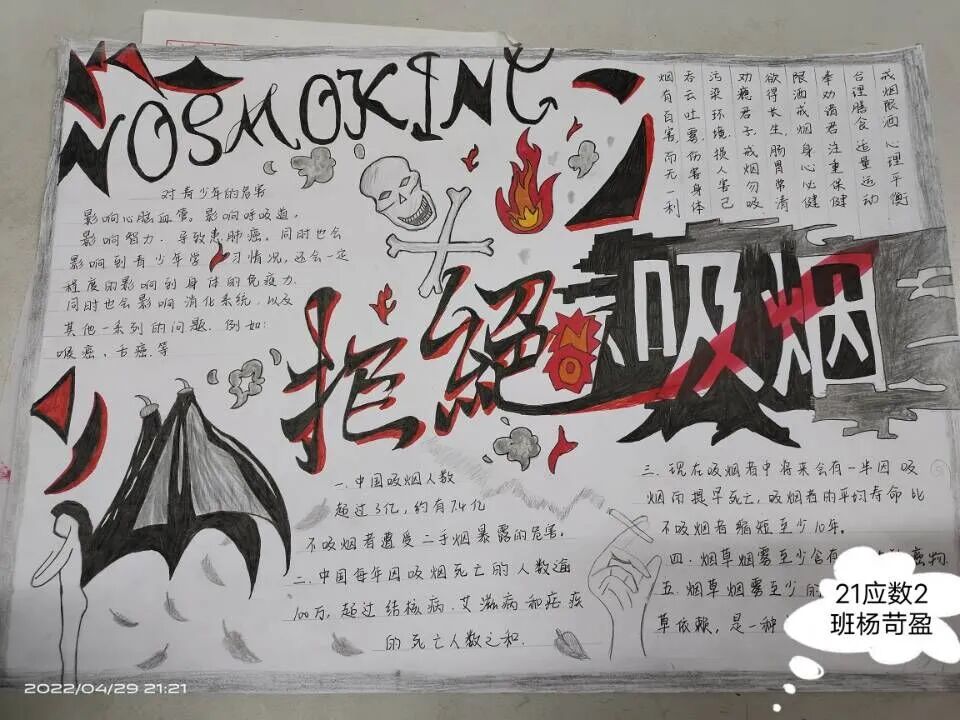 NOSMOKING
戒烟限酒 心理平衡
合理膳食 适量运动
奉劝诸君 注重保健
限酒戒烟 身心必健
欲得长生,肠胃常清
劝瘾君子,戒烟勿吸
污染环境,损人害己
吞云吐雾,伤害身体
烟有百害,而无一利
对青少年的危害
影响心脑血管。影响呼吸道,
影响智力.导致患肺癌.同时也会
影响到青少年学习情况,还会一定
程度的影响到身体的免疫力.
同时也会影响消化系统.以及
其他一系列的问题.例如:
喉癌、舌癌.等
拒絕
NO
吸烟
一.中国吸烟人数
超过3亿,约有7.4亿
不吸烟者遭受二手烟暴露的危害。
二.中国每年因吸烟死亡的人数逾
100万,超过结核病.艾滋病和疟疾
的死亡人数之和.
三.现在吸烟者中将来会有一半因吸
烟而提早死亡,吸烟者的平均寿命比
不吸烟者缩短至少10年。
四.烟草烟雾至少含有 害物.
五.烟草烟雾至少的
草依赖,是一种
21应数2
班杨苛盈
2022/04/29 21:21